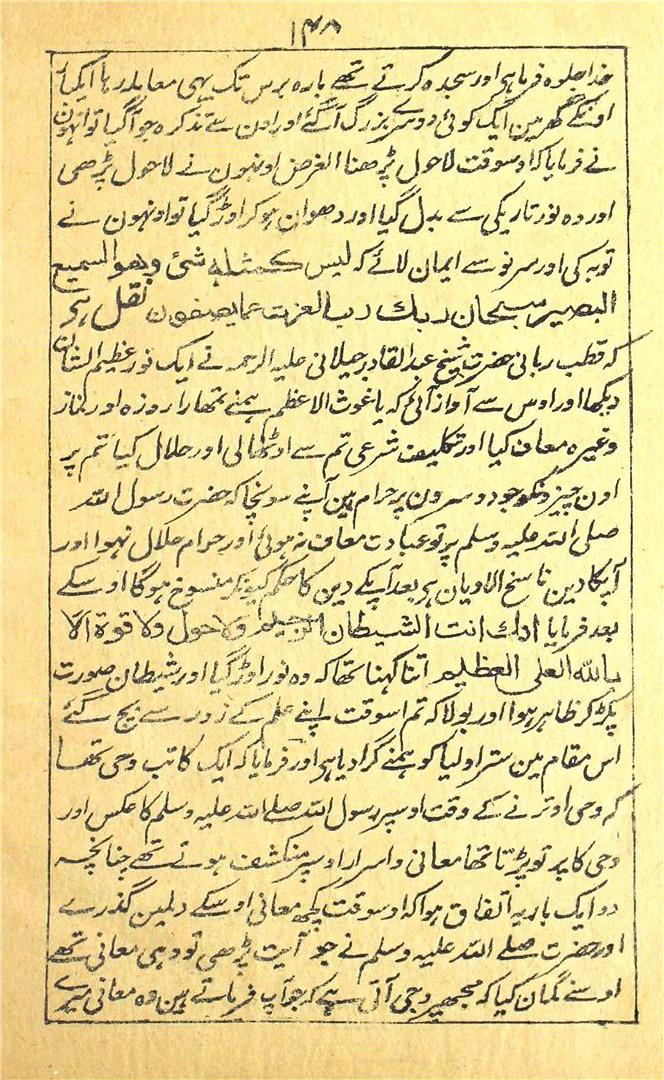 ۱۴۸
خدا جلوہ فرما ہی اور سجدہ کرتے تھے بارہ برس تک یہی معاملہ رہا ایکبار
اونکے گھر مین ایک کوئی دوسرے بزرگ آگئے اور اون سے تذکرہ جو آگیا تو انہون
نے فرمایا کہ اوسوقت لاحول پڑھنا الغرض اونہون نے لاحول پڑھی
اور وہ نور تاریکی سے بدل گیا اور دھوان ہو کر اوڑ گیا تو اونہون نے
توبہ کی اور سر نو سے ایمان لائے کہ لیس کمثلہ شئ وھو السمیع
البصیر سبحان ربك رب العزت عما یصفون نقل ہی
کہ قطب ربانی حضرت شیخ عبد القادر جیلانی علیہ الرحمہ نے ایک نور عظیم الشان
دیکھا اور اوس سے آواز آئی کہ یا غوث الاعظم ہمنے تمھارا روزہ اور نماز
وغیرہ معاف کیا اور تکلیف شرعی تم سے اوٹھالی اور حلال کیا تم پر
اون چیزونکو جو دوسرون پر حرام ہین آپنے سونچا کہ حضرت رسول اللہ
صلی اللہ علیہ وسلم پر تو عبادت معاف نہ ہوئی اور حرام حلال نہوا اور
آپکا دین ناسخ الادیان ہی بعد آپکے دین کا حکم کیونکر منسوخ ہوگا اوسکے
بعد فرمایا انك انت الشیطان الرجیم ولاحول ولا قوة الا
باللہ العلی العظیم اتنا کہنا تھا کہ وہ نور اوڑ گیا اور شیطان صورت
پکڑ کر ظاہر ہوا اور بولا کہ تم اسوقت اپنے علم کے زور سے بچ گئے
اس مقام مین ستر اولیا کو ہمنے گرا دیا ہی اور فرمایا کہ ایک کاتب وحی تھا
کہ وحی اوترنے کے وقت اوسپر رسول اللہ صلے اللہ علیہ وسلم کا عکس اور
وحی کا پرتو پڑتا تھا معانی و اسرار اوسپر منکشف ہوتے تھے چنانچہ
دو ایک بار یہ اتفاق ہوا کہ اوسوقت کچھ معانی اوسکے دلمین گذرے
اور حضرت صلے اللہ علیہ وسلم نے جو آیت پڑھی تو وہی معانی تھے
اوسنے گمان کیا کہ مجھپر وحی آتی ہے کہ جو آپ فرماتے ہین وہ معانی میرے